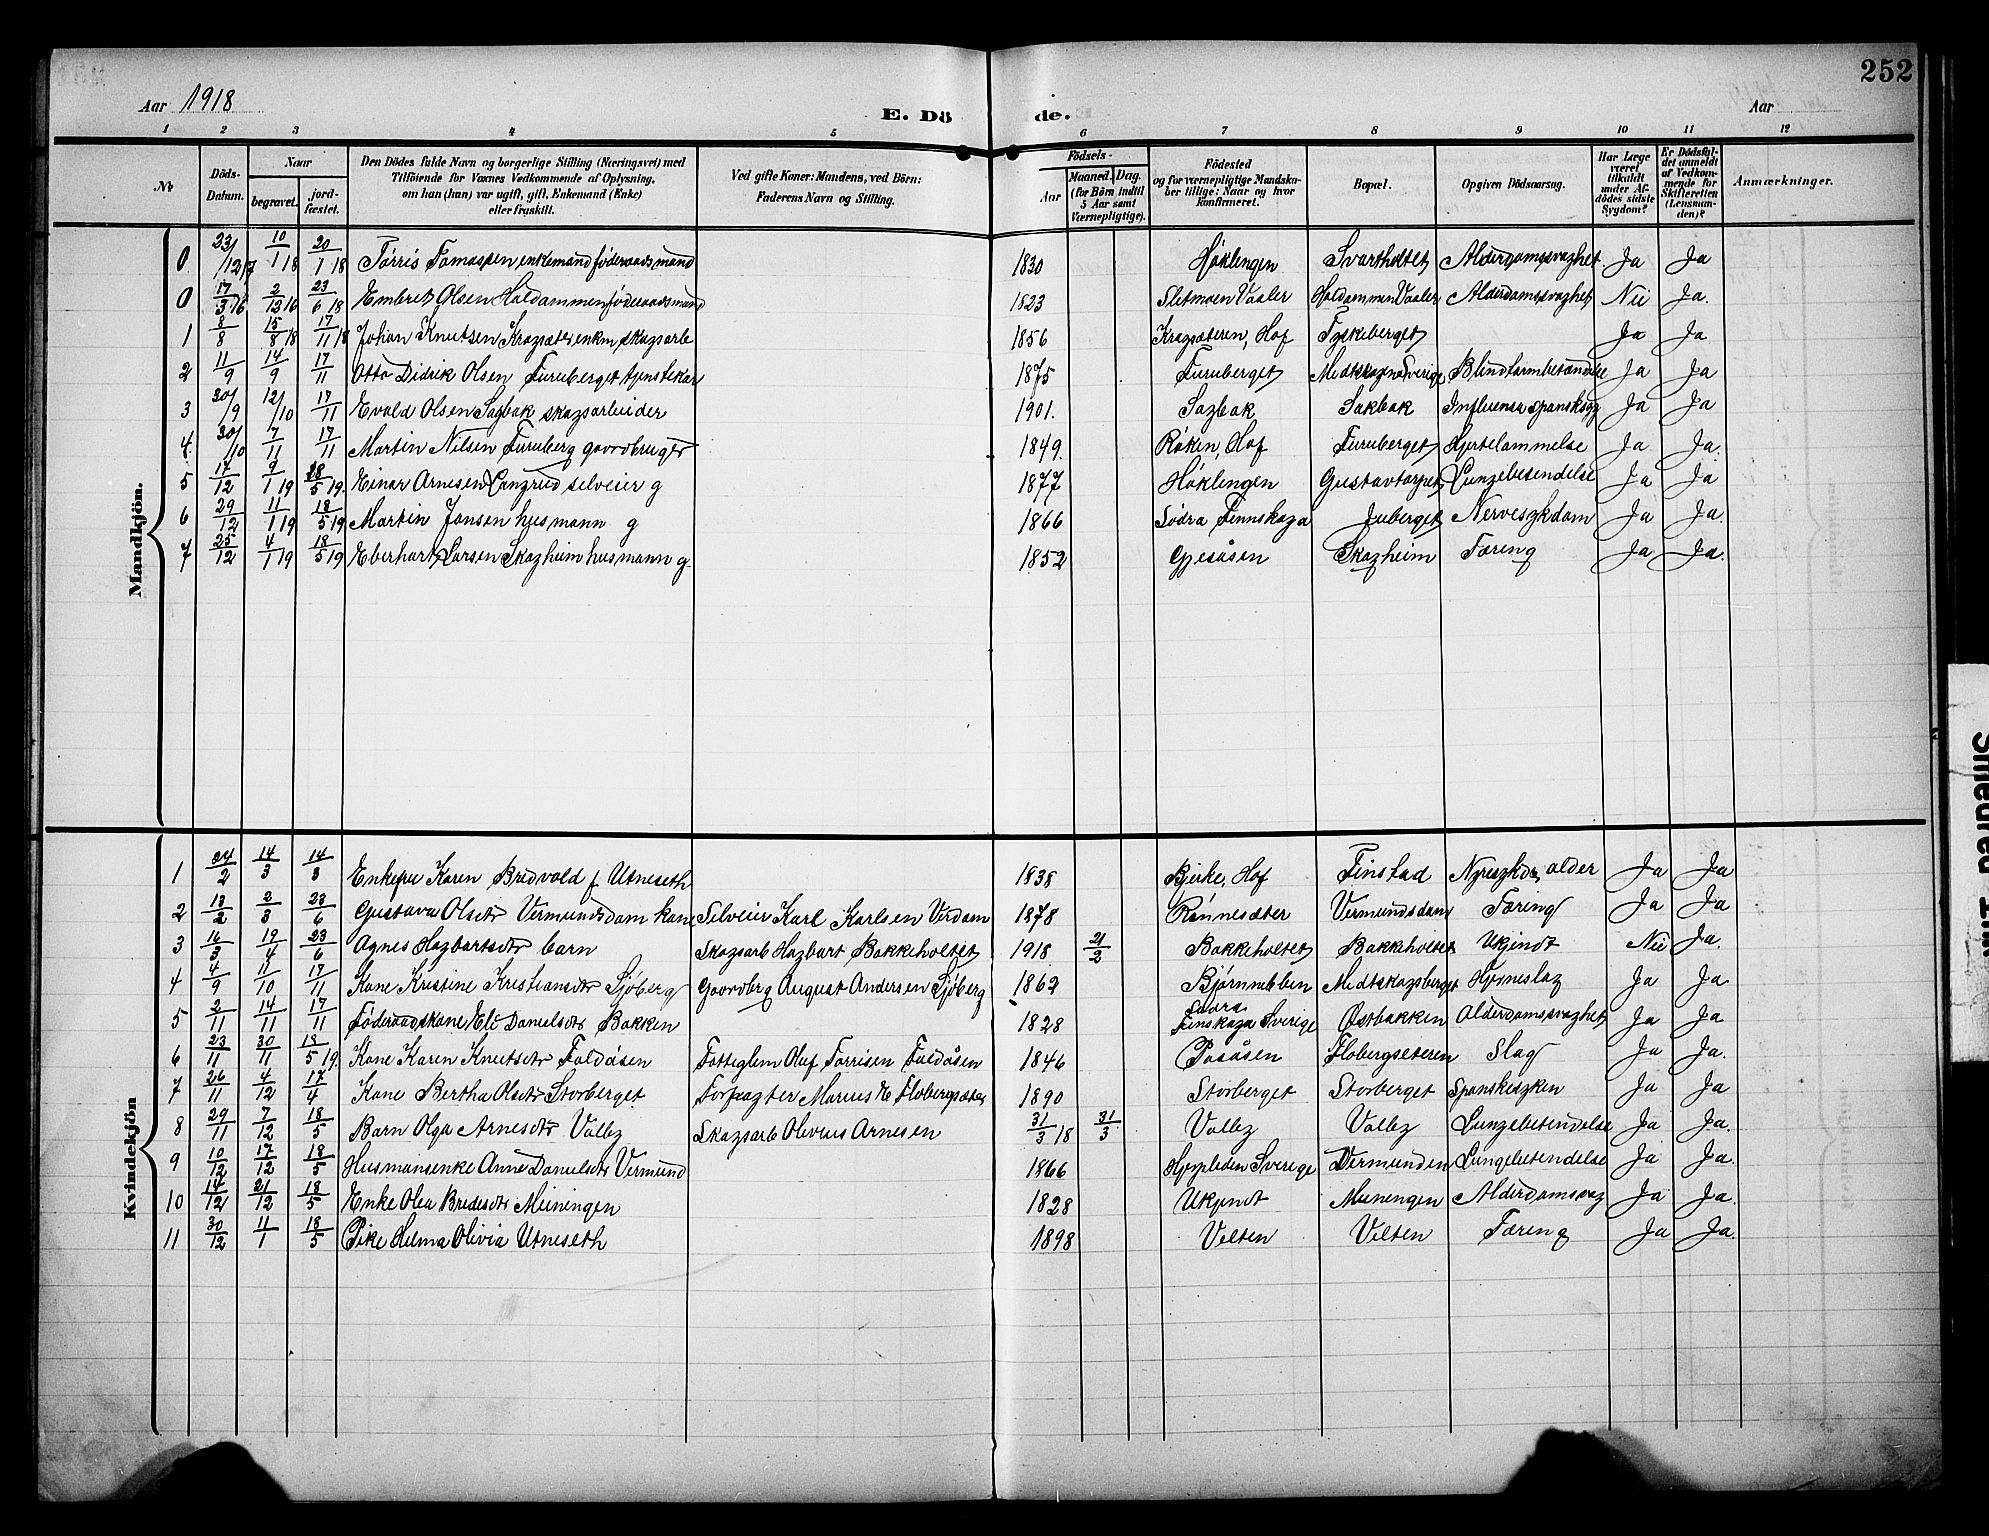 252
Aar 1918
E. Dö de.
Aar
1 2 3 4 5 6 7 8 9 10 11 12
No
Döds-Datum.
Naar
begravet.
jord-fæstet.
Den Dödes fulde Navn og borgerlige Stilling (Næringsvei) med
Tilföiende for Voxnes Vedkommende af Oplysning,
om han (hun) var ugift, gift, Enkemand (Enke)
eller fraskilt.
Ved gifte Koner: Mandens, ved Börn:
Faderens Navn og Stilling.
Födsels-
Aar
Maaned. Dag.
(for Börn indtil
5 Aar samt
Værnepligtige).
Födested
og for værnepligtige Mandska-
ber tillige: Naar og hvor
konfirmeret.
Bopæl.
Opgiven Dödsaarsag.
Har Læge
været
tilkaldt
under Af-
dödes sidste
Sygdom?
Er Dödsfal-
det anmeldt
af Vedkom-
mende for
Skifteretten
(Lensman-
den)?
Anmærkninger.
Mandkjön.
0 23/12 17 10/1 18 20/1 18 Tørris Tomassen enkemand føderaadsmand 1830 Høklengen Svartholtet Alderdomssvaghet Ja Ja
0 17/3 16 2/12 16 23/6 18 Embret Olsen Holdammen føderaadsmand 1823 Sletmoen Vaaler Holdammen Vaaler Alderdomssvaghet Nei Ja.
1 8/8 15/8 18 17/11 18 Johan Knutsen Kragsæter enkm. skogsarb 1856 Kragsæteren, Hof Tyskeberget Ja Ja
2 11/9 14/9 17/11 Otto Didrik Olsen Furuberget tjenstekar 1875 Furuberget Medtskogen Sverige Blindtarmbetændelse Ja Ja
3 30/9 12/10 17/11 Evald Olsen Sagbak skogsarbeider 1901. Sagbak Sakbak Influensa spansksyg Ja Ja
4. 30/10 7/11 17/11 Martin Nilsen Furuberg gaardbruger 1849. Røken, Hof Furuberget Hjertelammelse Ja Ja.
5 17/12 9/1 19 28/5 19. Einar Arnesen Langrud selveier g 1877 Høklengen Gustavtorpet Lungebetendelse Ja Ja
6 29/12 11/1 19 18/5 19 Martin Jonsen husmann g 1866 Södra Finnskoga Juberget Nervesykdom Ja Ja.
7 25/12 4/1 19 18/5 19 Eberhart Larsen Skogheim husmann g. 1852 Gjesåsen Skogheim Tæring Ja Ja.
Kvindekjön
1 24/2 14/3 14/3 Enkefru Karen Bredvold f Utneseth 1838 Bjerke, Hof Finstad Nyresykd., alder Ja Ja
2 13/2 2/3 23/6 Gustava Olsdtr Vermundsdam kone Selveier Karl Karlsen Verdam 1878 Rønnesæter Vermundsdam Tæring Ja Ja
3 16/3 19/4 23/6 Agnes Hagbartsdtr barn Skogsarb Hagbart Bakkeholtet 1918 21/2 Bakkeholtet Bakkeholtet Ukjendt Nei Ja.
4 4/9 11/10 17/11 Kone Kristine Kristiansdtr Sjøberg Gaardbrg August Andersen Sjøberg 1862 Bjørnnebben Medtskogsberget Hjerneslag Ja Ja.
5 2/11 14/11 17/11 Føderaadskone Eli Danielsdtr Bakken 1828 Södra Finskoga Sverige Østbakken Alderdomssvaghet Ja Ja
6 23/11 30/11 18/5 19. Kone Karen Knutsdtr Faldåsen Fattiglem Oluf Torrisen Faldåsen 1846 Posåsen Flobergseteren Slag Ja Ja.
7 26/11 4/12 17/4 Kone Bertha Olsdtr Storberget Forpagter Marius E Flobergsæter 1890 Storberget Storberget Spanskesyken Ja Ja
8 29/11 7/12 18/5 Barn Olga Arnesdtr Valby Skogsarb Oliveus Arnesen 31/3 18 31/3 Valby Valby Lungebetendelse Ja Ja.
9 10/12 17/12 18/5 Husmansenke Anne Danielsdtr Vermund 1866 Sverige Vermunden Lungebetendelse Ja Ja.
10 14/12 21/12 18/5 Enke Olea Bredesdtr Meiningen 1828 Ukjendt Meiningen Alderdomssvag Ja Ja.
11 30/12 11/1 18/5 Pike Helma Olivia Utneseth 1898 Velten Velten Tæring Ja Ja.